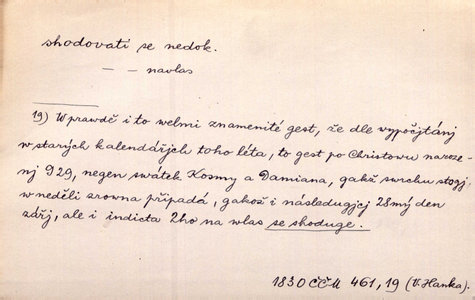 shodovati se nedok.
— — navlas
19) W prawdě i to welmi znamenité gest, že dle wypočjtánj
w starých kalendářjch toho léta, to gest po Christowu naroze-
nj 929, negen swátek Kosmy a Damiana, gakž swrchu stogj
w neděli zrowna připadá, gakož i následugjcj 28mý den
zářj, ale i indicta 2ho na wlas se shoduge.
1830 ČČM 461, 19 (V. Hanka).